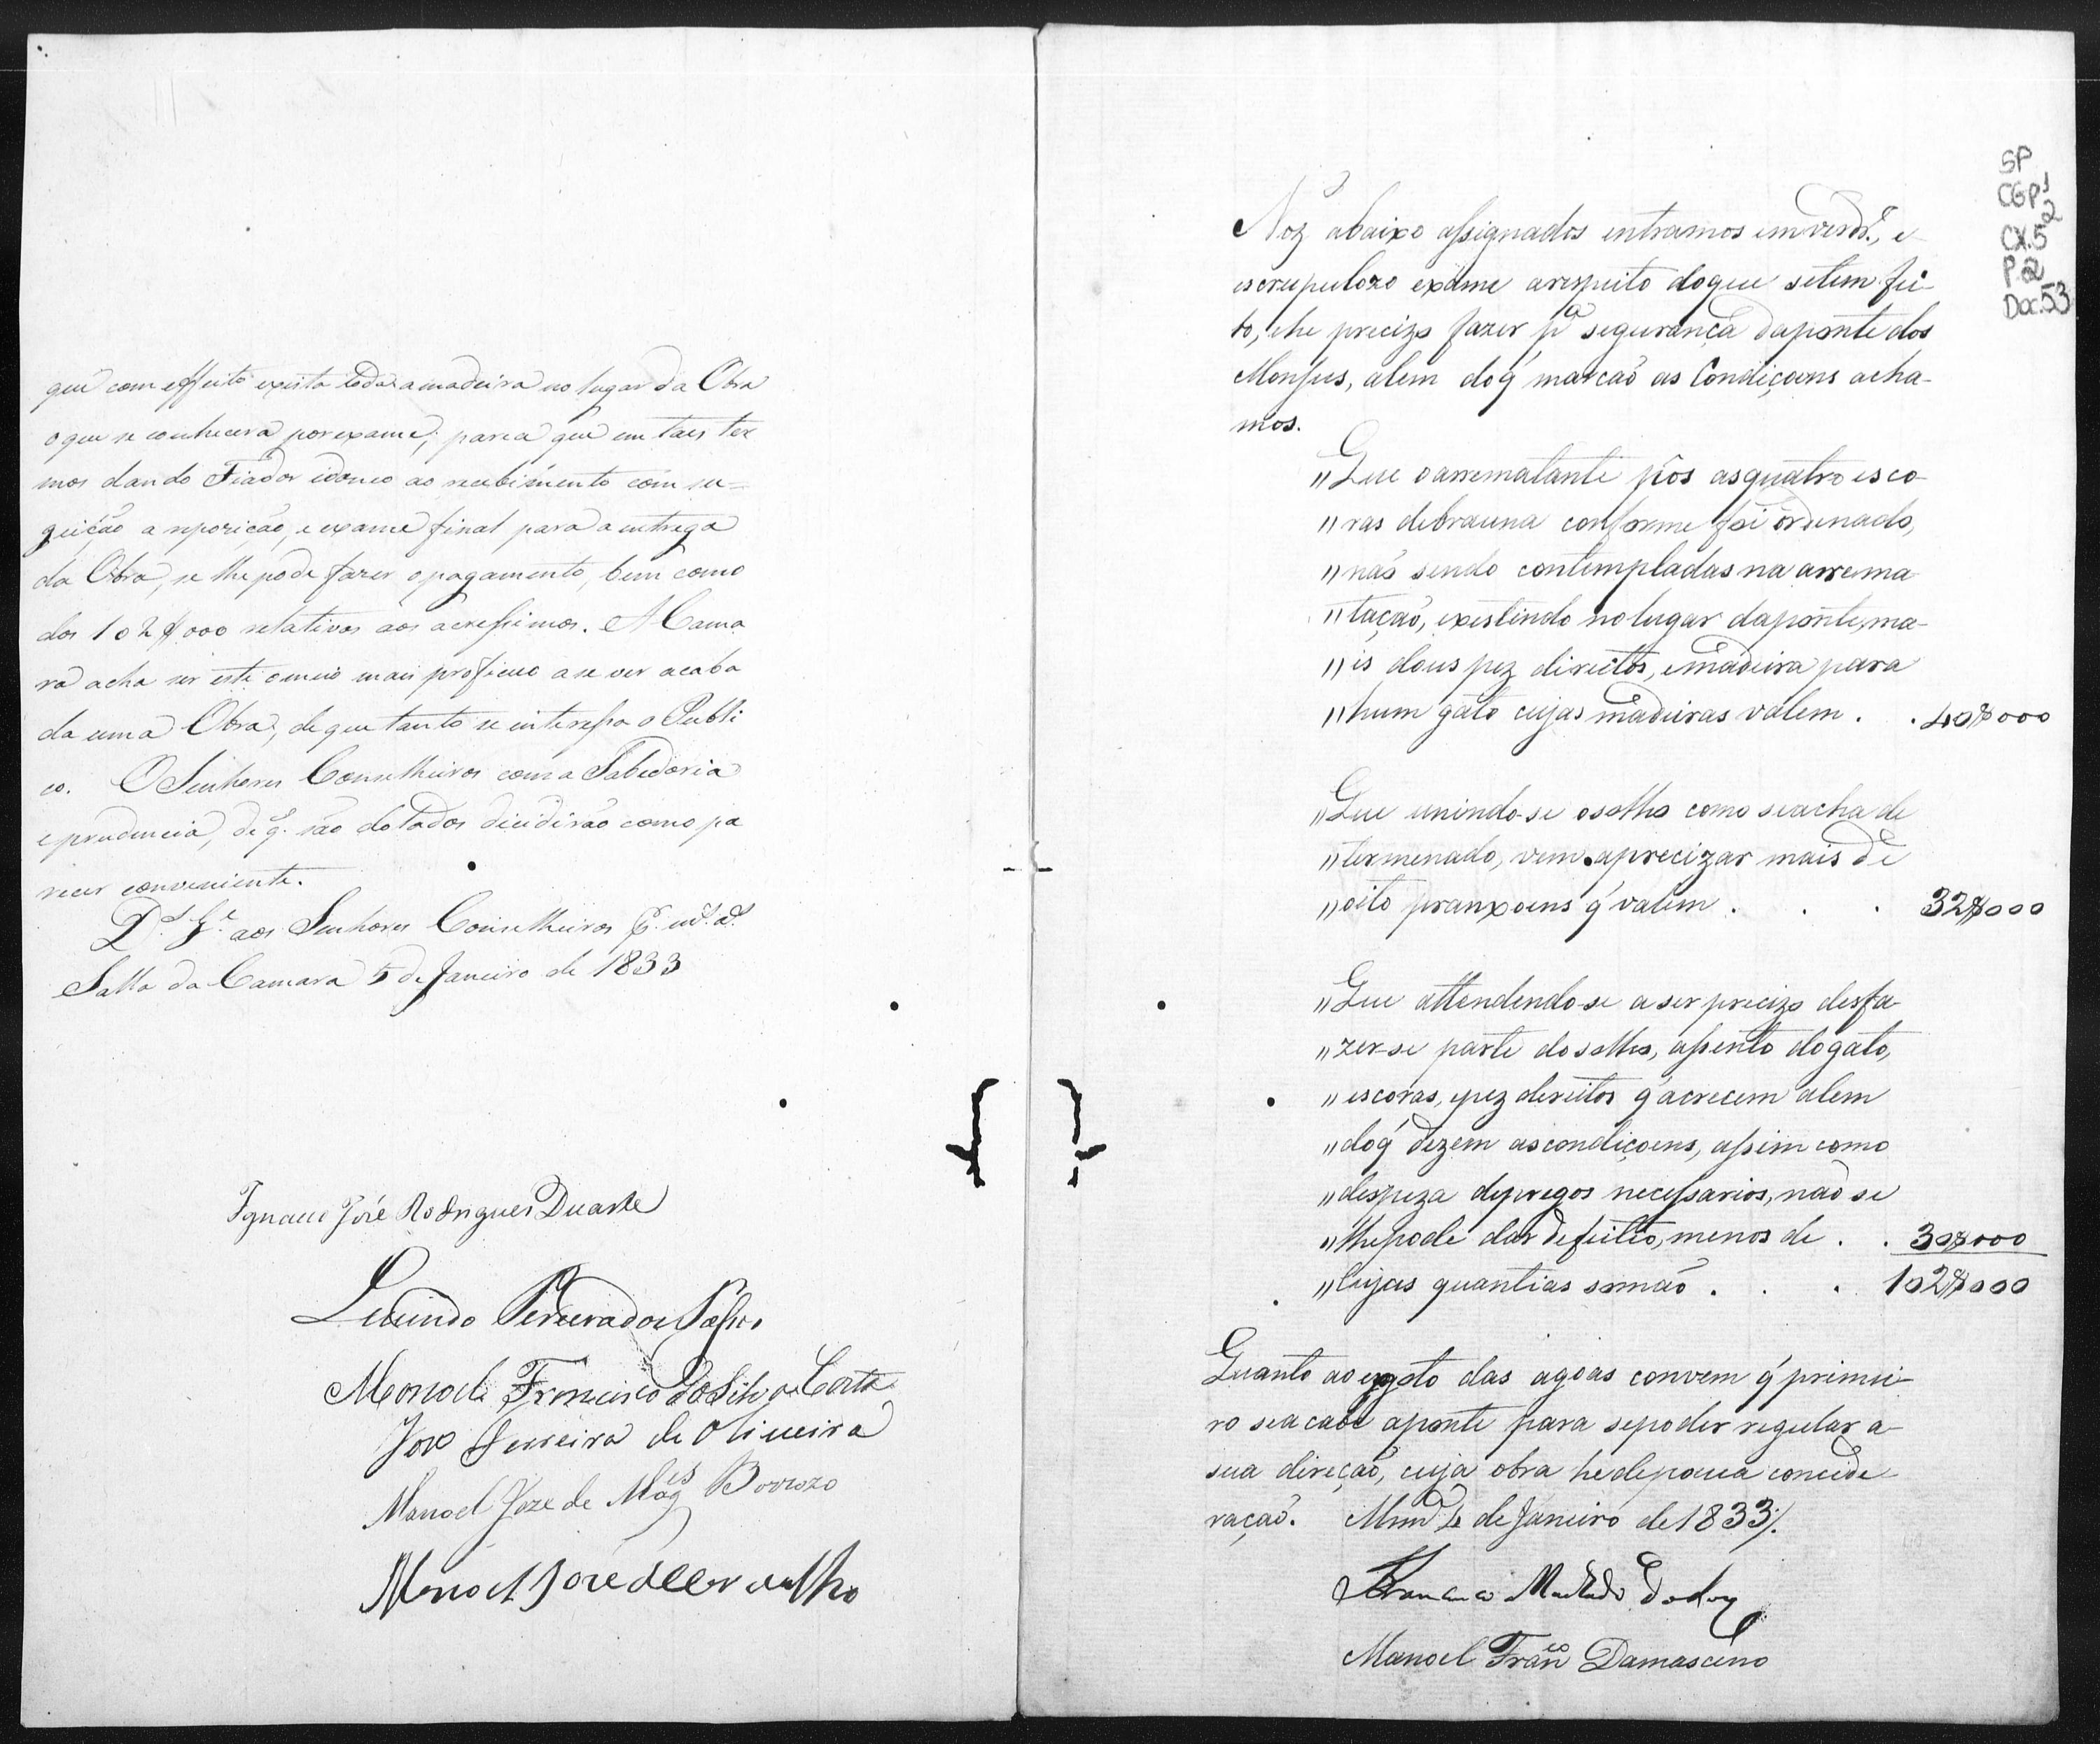 que com effeito exista toda a madeira no lugar da Obra
o que se conhecerá por exame; parece que em taes ter
mos dando Fiador idoneo ao recebimento com su=
geição a reposição, e exame final para a entrega
da Obra, se lhe pode fazer o pagamento, bem como
dos 102$000 relativos aos acressimos. A Cama
ra acha ser este o meio mais proficuo a se ver acaba
da uma Obra, de que tanto se interessa o Publi
co. O Senhores Conselheiros com a Sabedoria
e prudencia, de q. são dotados dicidirão como pa
recer conveniente.
D.s G.e aos Senhores Conselheiros
Salla da Camara 5 de Janeiro de 1833
Ignacio José Rodrigues Duarte
Lucindo Pereira dos Passos
Manoel Francisco da Silva Costa
Jose Ferreira de Oliveira
Manoel Joze de Mag.es Borrozo
Manoel José de Carvalho
SP
CGP1
CX.52
P.2
Doc.53
Noz abaixo assignados entramos em verd.e, e
escrupulozo exame arespeito doque setem fei-
to, ehe precizo fazer p.a segurança daponte dos
Monsus, alem doq' marcaõ as Condiçoens acha-
mos.
"Que oarrematante pôs asquatro esco-
"ras debrauna conforme foi ordenado,
"naõ sendo contempladas na arrema
"taçaõ, existindo nolugar daponte, ma-
"is dous pez direitos, emadeira para
"hum gato cujas madeiras valem . . 40$000
"Que unindo-se osolho como seacha de
"termenado, vem aprecizar mais de
"oito pranxoens q' valem . . . 32$000
"Que attendendo-se a ser precizo desfa-
"zer-se parte dosolho, assento dogato,
"escoras, epez dereitos q' acrecem alem
"doq' dizem ascondiçoens, assim como
"despeza depregos necessarios, naõ se
"lhepode dar defeitio, menos de . . 30$000
"Cujas quantias somaõ . . . 102$000
Quanto ao esgoto das agoas convem q' primei-
ro seacabe aponte para sepoder regular a
sua direçaõ, cuja obra hedepouca concide-
raçaõ. 4 de Janeiro de 1833/.
Francisco Machado Godoy
Manoel Fran.co Damasceno